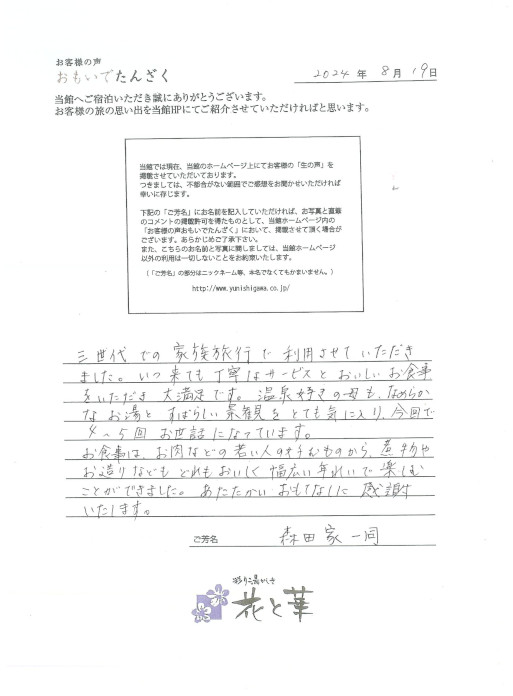 お客様の声
おもいでたんざく
2024 年 8 月 19 日
当館へご宿泊いただき誠にありがとうございます。
お客様の旅の思い出を当館HPにてご紹介させていただければと思います。
当館では現在、当館のホームページ上にてお客様の「生の声」を
掲載させていただいております。
つきましては、不都合がない範囲でご感想をお聞かせいただければ
幸いに存じます。
下記の「ご芳名」にお名前を記入していただければ、お写真と直筆
のコメントの掲載許可を得たものとして、当館ホームページ内の
「お客様の声おもいでたんざく」において、掲載させて頂く場合が
ございます。あらかじめご了承下さい。
また、こちらのお名前と写真に関しましては、当館ホームページ
以外の利用は一切しないことをお約束いたします。
(「ご芳名」の部分はニックネーム等、本名でなくてもかまいません。)
http://www.yunishigawa.co.jp/
三世代での家族旅行で利用させていただき
ました。いつ来ても丁寧なサービスとおいしいお食事
をいただき大満足です。温泉好きの母も、なめらか
なお湯とすばらしい景観をとても気に入り、今回で
4〜5回お世話になっています。
お食事は、お肉などの若い人の好むものから、煮物や
お造りなどもどれもおいしく幅広い年れいで楽しむ
ことができました。あたたかいおもてなしに感謝
いたします。
ご芳名 森田家一同
彩り湯かしき
花と華